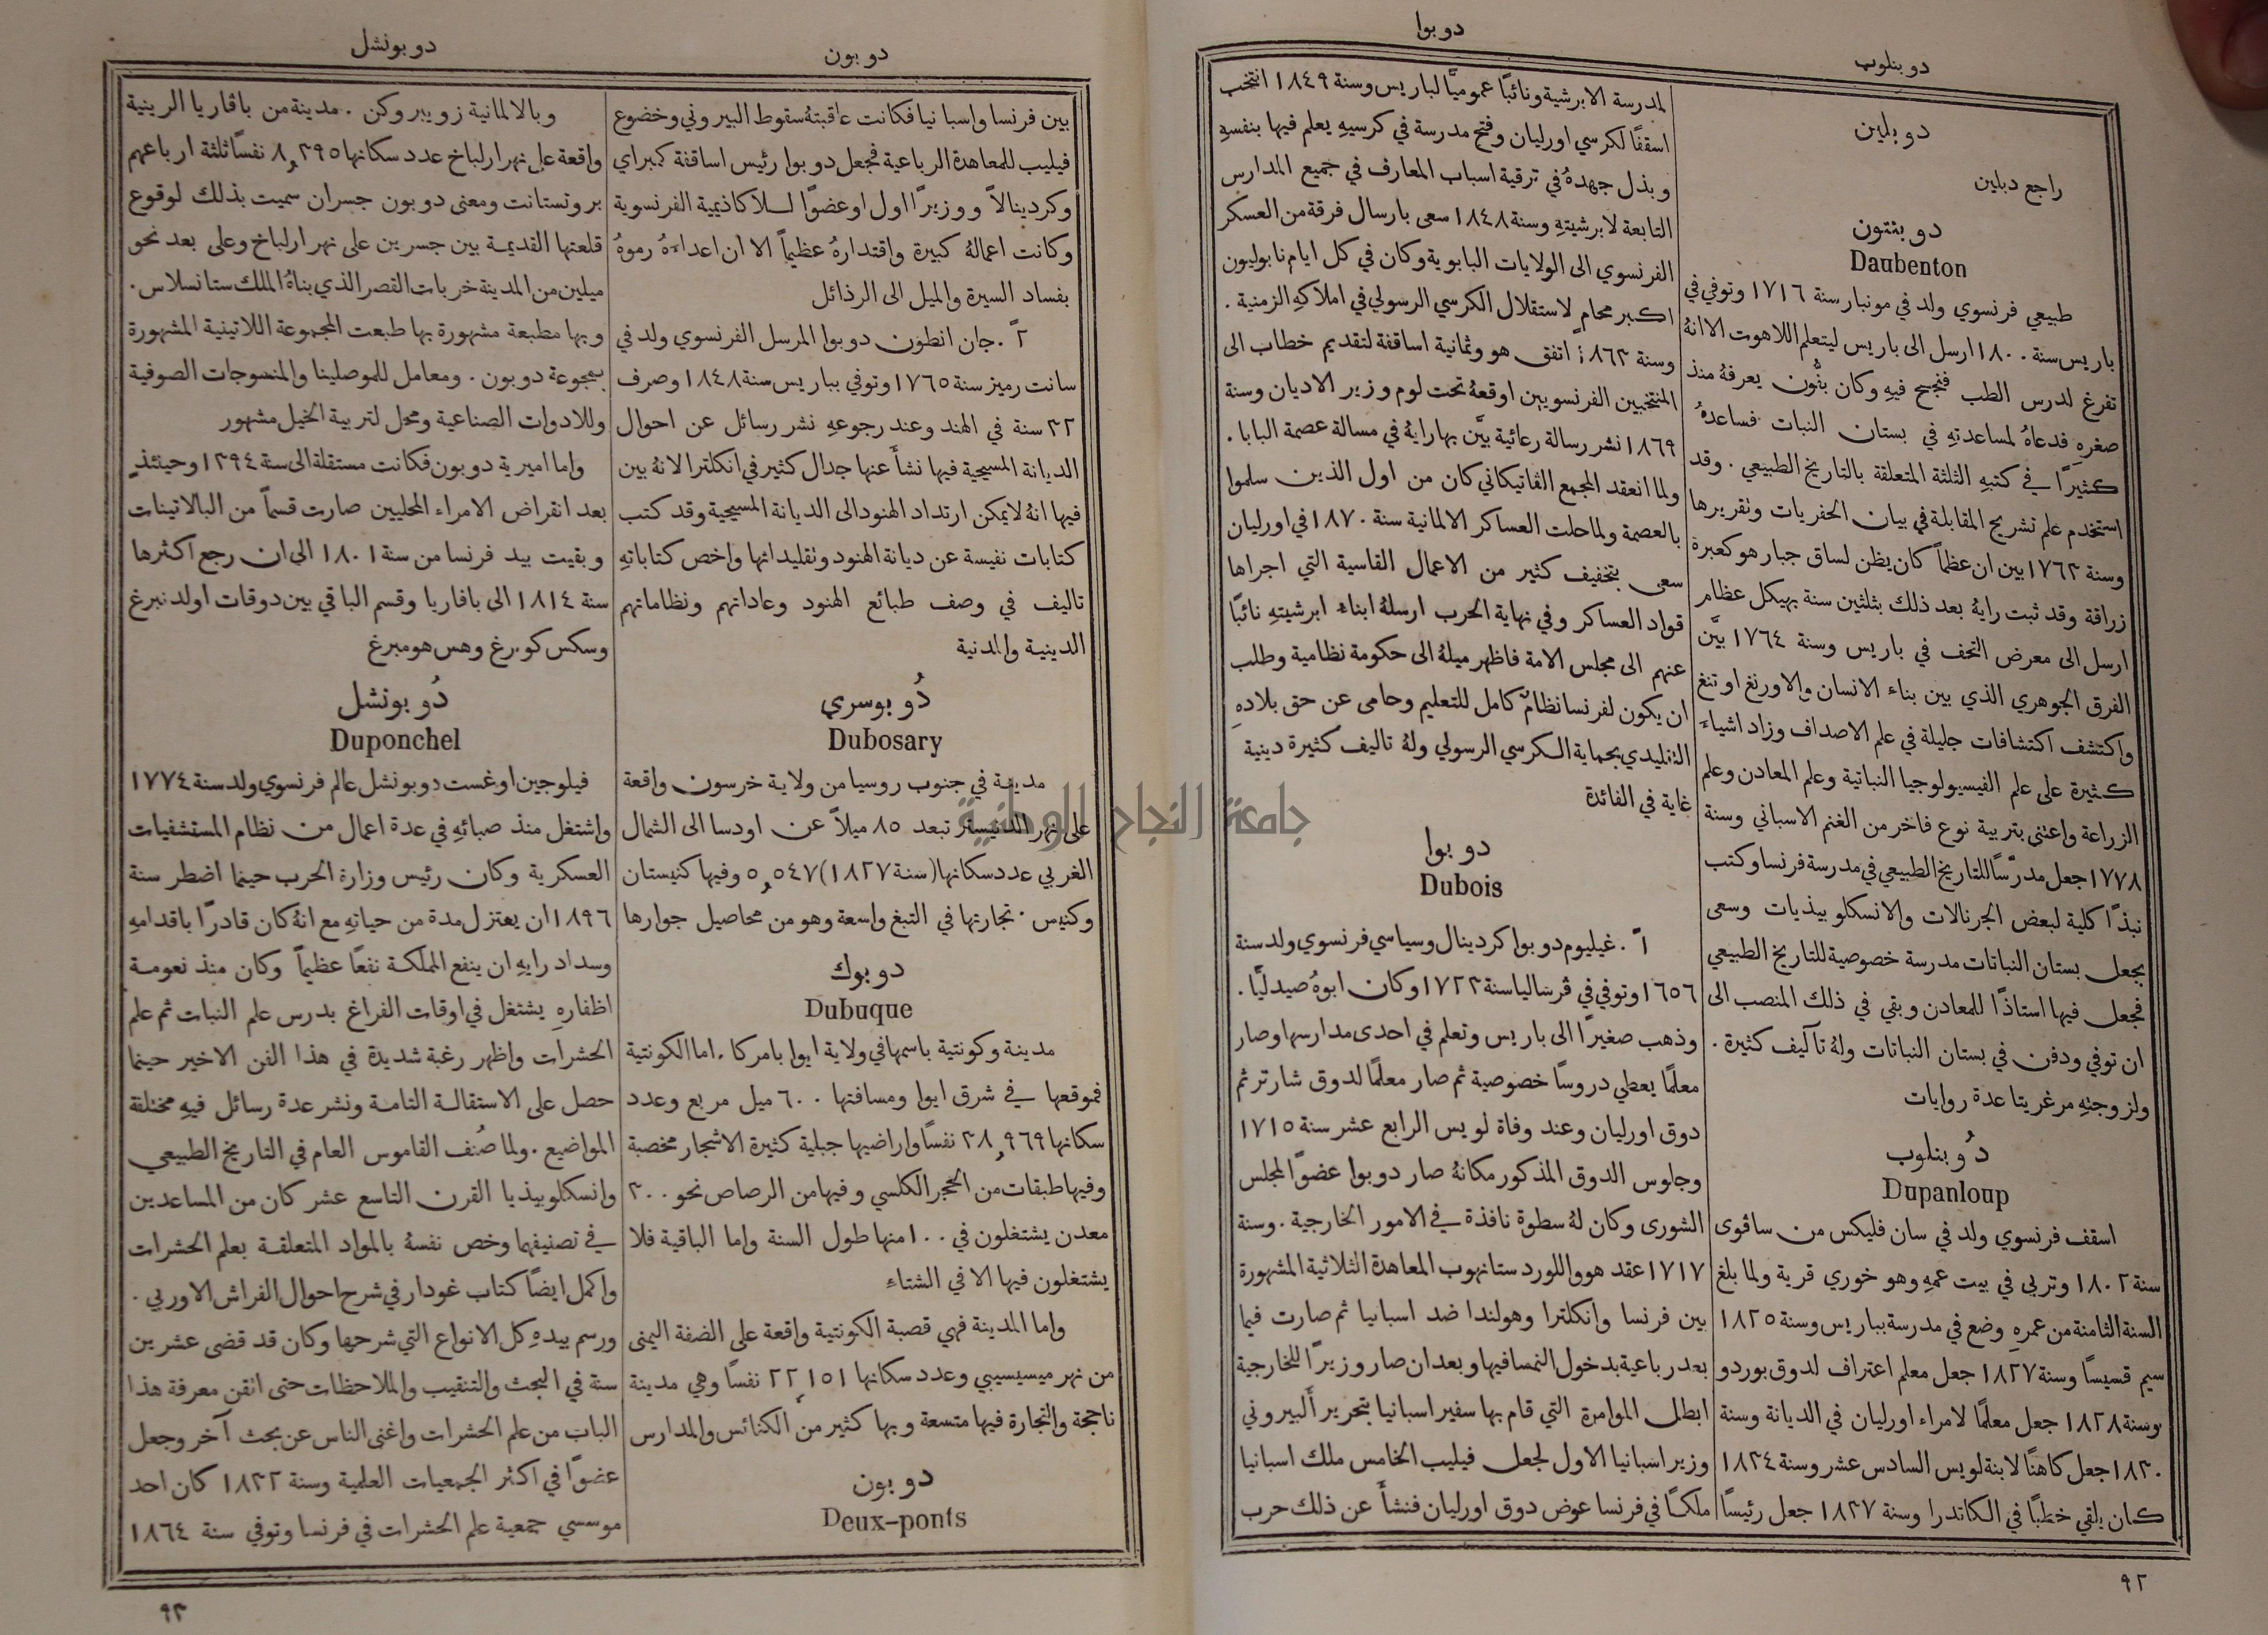 دوبنلوب
دوبوا
دوبلين
راجع دبلين
دوبنتون
Daubenton
طبيعي فرنسوي ولد في مونبار سنة ١٧١٦ وتوفي في
باريس سنة ١٨٠٠ ارسل الى باريس ليتعلم اللاهوت الا انهُ
تفرغ لدرس الطب فنجح فيهِ وكان بفُون يعرفهُ منذ
صغرهِ فدعاهُ لمساعدتهِ في بستان النبات فساعدهُ
كثيرًا في كتبهِ الثلثة المتعلقة بالتاريخ الطبيعي. وقد
استخدم علم تشريح المقابلة في بيان الحفريات وتقريرها
وسنة ١٧٦٢ بين ان عظماً كان يظن لساق جبار هو كعبرة
زرافة وقد ثبت رايهُ بعد ذلك بثلثين سنة بهيكل عظام
ارسل الى معرض التحف في باريس وسنة ١٧٦٤ بيَّن
الفرق الجوهري الذي بين بناء الانسان والاورنغ اوتنغ
واكتشف اكتشافات جليلة في علم الاصداف وزاد اشياء
كثيرة على علم الفيسيولوجيا النباتية وعلم المعادن وعلم
الزراعة واعتنى بتربية نوع فاخر من الغنم الاسباني وسنة
١٧٧٨ جعل مدرّسًا للتاريخ الطبيعي في مدرسة فرنسا وكتب
نبذًا كلية لبعض الجرنالات والانسكلوبيذيات وسعى
بجعل بستان النباتات مدرسة خصوصية للتاريخ الطبيعي
فجعل فيها استاذًا للمعادن وبقي في ذلك المنصب الى
ان توفي ودفن في بستان النباتات ولهُ تآليف كثيرة.
ولزوجتهِ مرغريتا عدة روايات
دُوبنلوب
Dupanloup
اسقف فرنسوي ولد في سان فليكس من ساڤوى
سنة ١٨٠٢ وتربى في بيت عمهِ وهو خوري قرية ولما بلغ
السنة الثامنة من عمرهِ وضع في مدرسة بباريس وسنة ١٨٢٥
سيم قسيسًا وسنة ١٨٢٧ جعل معلم اعتراف لدوق بوردو
وسنة ١٨٢٨ جعل معلمًا لامراء اورليان في الديانة وسنة
١٨٣٠ جعل كاهنًا لابنة لويس السادس عشر وسنة ١٨٣٤
كان يلقي خطبًا في الكاتدرا وسنة ١٨٣٧ جعل رئيسًا
لمدرسة الابرشية ونائبًا عموميًّا لباريس وسنة ١٨٤٩ انتخب
اسقفًا لكرسي اورليان وفتح مدرسة في كرسيهِ يعلم فيها بنفسهِ
وبذل جهدهُ في ترقية اسباب المعارف في جميع المدارس
التابعة لابرشيتهِ وسنة ١٨٤٨ سعى بارسال فرقة من العسكر
الفرنسوي الى الولايات البابوية وكان في كل ايام نابوليون
اكبر محامٍ لاستقلال الكرسي الرسولي في املاكهِ الزمنية.
وسنة ١٨٦٣ اتفق هو وثمانية اساقفة لتقديم خطاب الى
المنتخبين الفرنسويين اوقعهُ تحت لوم وزير الاديان وسنة
١٨٦٩ نشر رسالة رعائية بيَّن بها رايهُ في مسالة عصمة البابا.
ولما انعقد المجمع الڤاتيكاني كان من اول الذين سلموا
بالعصمة ولما حلت العساكر الالمانية سنة ١٨٧٠ في اورليان
سعى بتخفيف كثير من الاعمال القاسية التي اجراها
قواد العساكر وفي نهاية الحرب ارسلهُ ابناء ابرشيتهِ نائبًا
عنهم الى مجلس الامة فاظهر ميلهُ الى حكومة نظامية وطلب
ان يكون لفرنسا نظامٌ كامل للتعليم وحامى عن حق بلادهِ
التقليدي بحماية الكرسي الرسولي ولهُ تاليف كثيرة دينية
غاية في الفائدة
دوبوا
Dubois
١ً. غيليوم دوبوا كردينال وسياسي فرنسوي ولد سنة
١٦٥٦ وتوفي في ڤرساليا سنة ١٧٢٣ وكان ابوهُ صيدليًّا.
وذهب صغيرًا الى باريس وتعلم في احدى مدارسها وصار
معلمًا يعطي دروسًا خصوصية ثم صار معلمًا لدوق شارتر ثم
دوق اورليان وعند وفاة لويس الرابع عشر سنة ١٧١٥
وجلوس الدوق المذكور مكانهُ صار دوبوا عضوًا لمجلس
الشورى وكان لهُ سطوة نافذة في الامور الخارجية. وسنة
١٧١٧ عقد هو واللورد ستانهوب المعاهدة الثلاثية المشهورة
بين فرنسا وانكلترا وهولندا ضد اسبانيا ثم صارت فيما
بعد رباعية بدخول النمسا فيها وبعد ان صار وزيرًا للخارجية
ابطل الموامرة التي قام بها سفير اسبانيا بتحرير ألبيروني
وزير اسبانيا الاول لجعل فيليب الخامس ملك اسبانيا
ملكًا في فرنسا عوض دوق اورليان فنشأ عن ذلك حرب
٩٢
دوبون
دوبونشل
بين فرنسا واسبانيا فكانت عاقبتهُ سقوط البيروني وخضوع
فيليب للمعاهدة الرباعية فجعل دوبوا رئيس اساقفة كمبراي
وكردينالاً ووزيرًا اول اوعضوًا للاكاذيمية الفرنسوية
وكانت اعمالهُ كبيرة واقتدارهُ عظيماً الا ان اعداءهُ رموهُ
بفساد السيرة والميل الى الرذائل
٢ً. جان انطون دوبوا المرسل الفرنسوي ولد في
سانت رميز سنة ١٧٦٥ وتوفي بباريس سنة ١٨٤٨ وصرف
٣٢ سنة في الهند وعند رجوعهِ نشر رسائل عن احوال
الديانة المسيحية فيها نشأ عنها جدال كثير في انكلترا لانهُ بين
فيها انهُ لا يمكن ارتداد الهنود الى الديانة المسيحية وقد كتب
كتابات نفيسة عن ديانة الهنود وتقليداتها واخص كتاباتهِ
تاليف في وصف طبائع الهنود وعاداتهم ونظاماتهم
الدينية والمدنية
دُوبوسري
Dubosary
مدينة في جنوب روسيا من ولاية خرسون واقعة
على نهر الدنيستر تبعد ٨٥ ميلاً عن اودسا الى الشمال
الغربي عدد سكانها (سنة ١٨٢٧) ٥٬٥٤٧ وفيها كنيستان
وكنيس. تجارتها في التبغ واسعة وهو من محاصيل جوارها
دوبوك
Dubuque
مدينة وكونتية باسمها في ولاية ايوا بامركا. اما الكونتية
فموقعها في شرق ايوا ومسافتها ٦٠٠ ميل مربع وعدد
سكانها ٣٨٬٩٦٩ نفسًا واراضيها جبلية كثيرة الاشجار مخصبة
وفيها طبقات من الحجر الكلسي وفيها من الرصاص نحو ٣٠٠
معدن يشتغلون في ١٠٠ منها طول السنة واما الباقية فلا
يشتغلون فيها الا في الشتاء
واما المدينة فهي قصبة الكونتية واقعة على الضفة اليمنى
من نهر ميسيسيبي وعدد سكانها ٢٢٬١٥١ نفسًا وهي مدينة
ناجحة والتجارة فيها متسعة وبها كثير من الكنائس والمدارس
دوبون
Deux-ponts
وبالالمانية زويبروكن. مدينة من باڤاريا الرينية
واقعة على نهر ارلباخ عدد سكانها ٨٬٢٩٥ نفسًا ثلثة ارباعهم
بروتستانت ومعنى دوبون جسران سميت بذلك لوقوع
قلعتها القديمة بين جسرين على نهر ارلباخ وعلى بعد نحو
ميلين من المدينة خربات القصر الذي بناهُ الملك ستانسلاس.
وبها مطبعة مشهورة بها طبعت المجموعة اللاتينية المشهورة
بمجموعة دوبون. ومعامل للموصلينا والمنسوجات الصوفية
وللادوات الصناعية ومحل لتربية الخيل مشهور
واما اميرية دوبون فكانت مستقلة الى سنة ١٣٩٤ وحينئذٍ
بعد انقراض الامراء المحليين صارت قسماً من البالاتينات
وبقيت بيد فرنسا من سنة ١٨٠١ الى ان رجع اكثرها
سنة ١٨١٤ الى بافاريا وقسم الباقي بين دوقات اولدنبرغ
وسكس كوبرغ وهس هومبرغ
دُوبونشل
Duponchel
فيلوجين اوغست دوبونشل عالم فرنسوي ولد سنة ١٧٧٤
واشتغل منذ صبائهِ في عدة اعمال من نظام المستشفيات
العسكرية وكان رئيس وزارة الحرب حينما اضطر سنة
١٨٩٦ ان يعتزل مدة من حياتهِ مع انهُ كان قادرًا باقدامهِ
وسداد رايهِ ان ينفع المملكة نفعًا عظيماً وكان منذ نعومة
اظفارهِ يشتغل في اوقات الفراغ بدرس علم النبات ثم علم
الحشرات واظهر رغبة شديدة في هذا الفن الاخير حينما
حصل على الاستقالة التامة ونشر عدة رسائل فيهِ مختلفة
المواضيع. ولما صُنف القاموس العام في التاريخ الطبيعي
وانسكلوبيذيا القرن التاسع عشر كان من المساعدين
في تصنيفهما وخص نفسهُ بالمواد المتعلقة بعلم الحشرات
واكمل ايضًا كتاب غودار في شرح احوال الفراش الاوربي.
ورسم بيدهِ كل الانواع التي شرحها وكان قد قضى عشرين
سنة في البحث والتنقيب والملاحظات حتى اتقن معرفة هذا
الباب من علم الحشرات واغنى الناس عن بحث آخر وجعل
عضوًا في اكثر الجمعيات العلمية وسنة ١٨٣٢ كان احد
موسسي جمعية علم الحشرات في فرنسا وتوفي سنة ١٨٦٤
٩٣
جامعة النجاح الوطنية